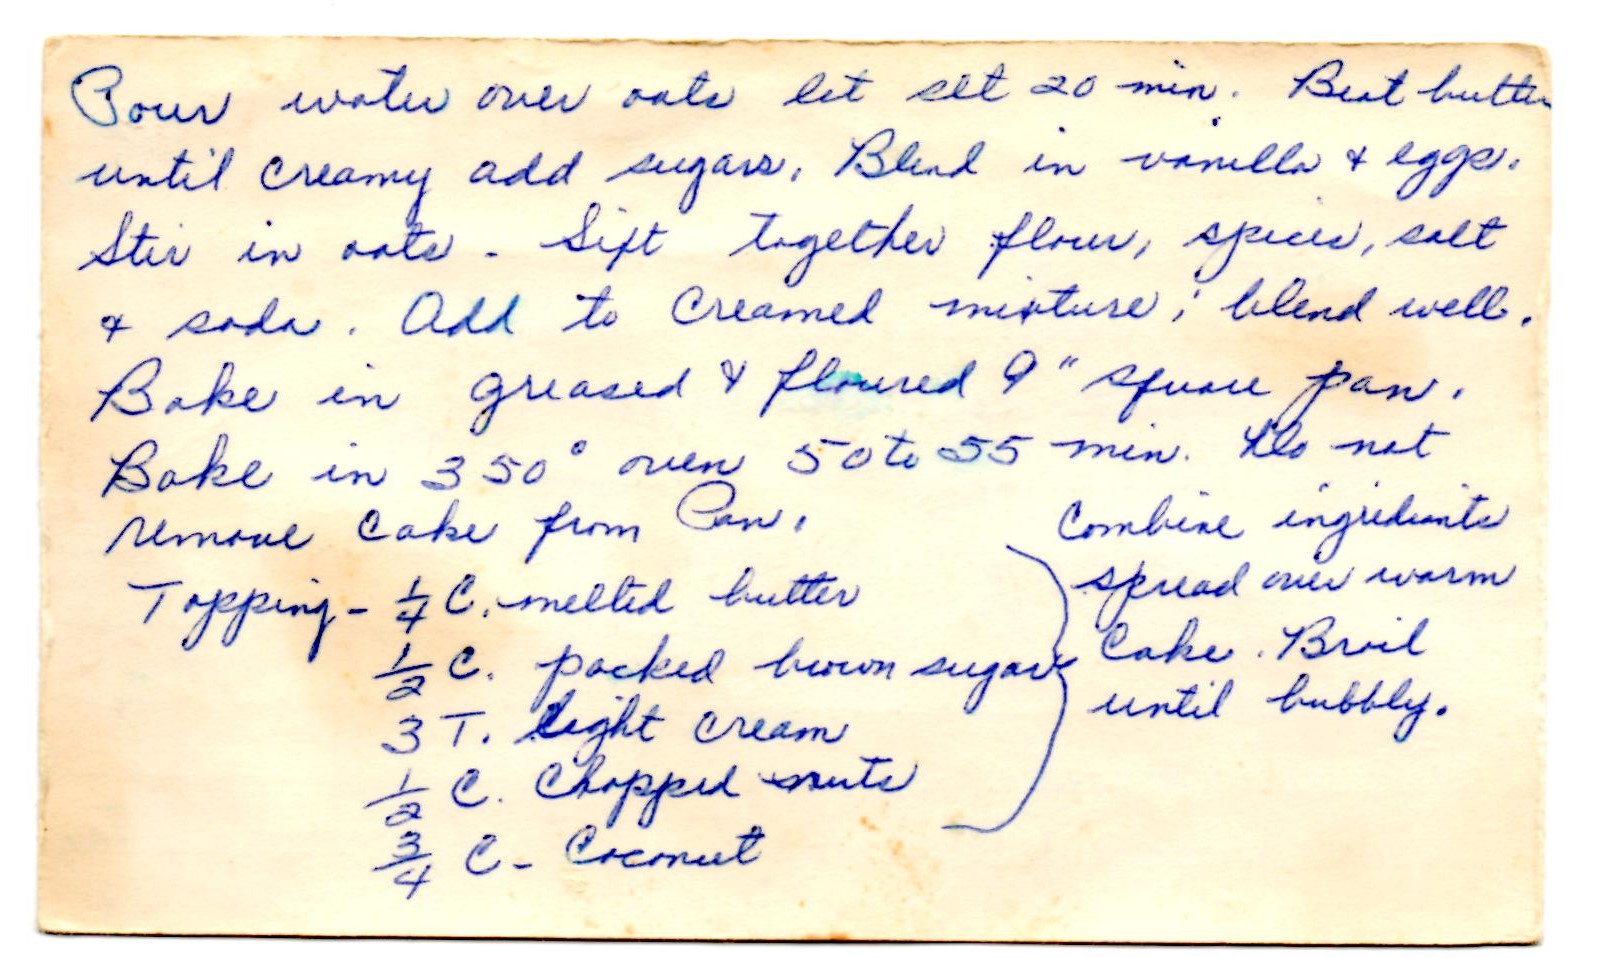 Pour water over oats let set 20 min. Beat butter
until creamy add sugars. Blend in vanilla & eggs.
Stir in oats - Sift together flour, spices, salt
& soda. Add to creamed mixture; blend well.
Bake in greased & floured 9" square pan.
Bake in 350° oven 50 to 55 min. Do not
remove cake from Pan.
Topping - 1/4 C. melted butter
1/2 C. packed brown sugar
3 T. light cream
1/2 C. Chopped nuts
3/4 C - Coconut
Combine ingredients
spread over warm
Cake. Broil
until bubbly.